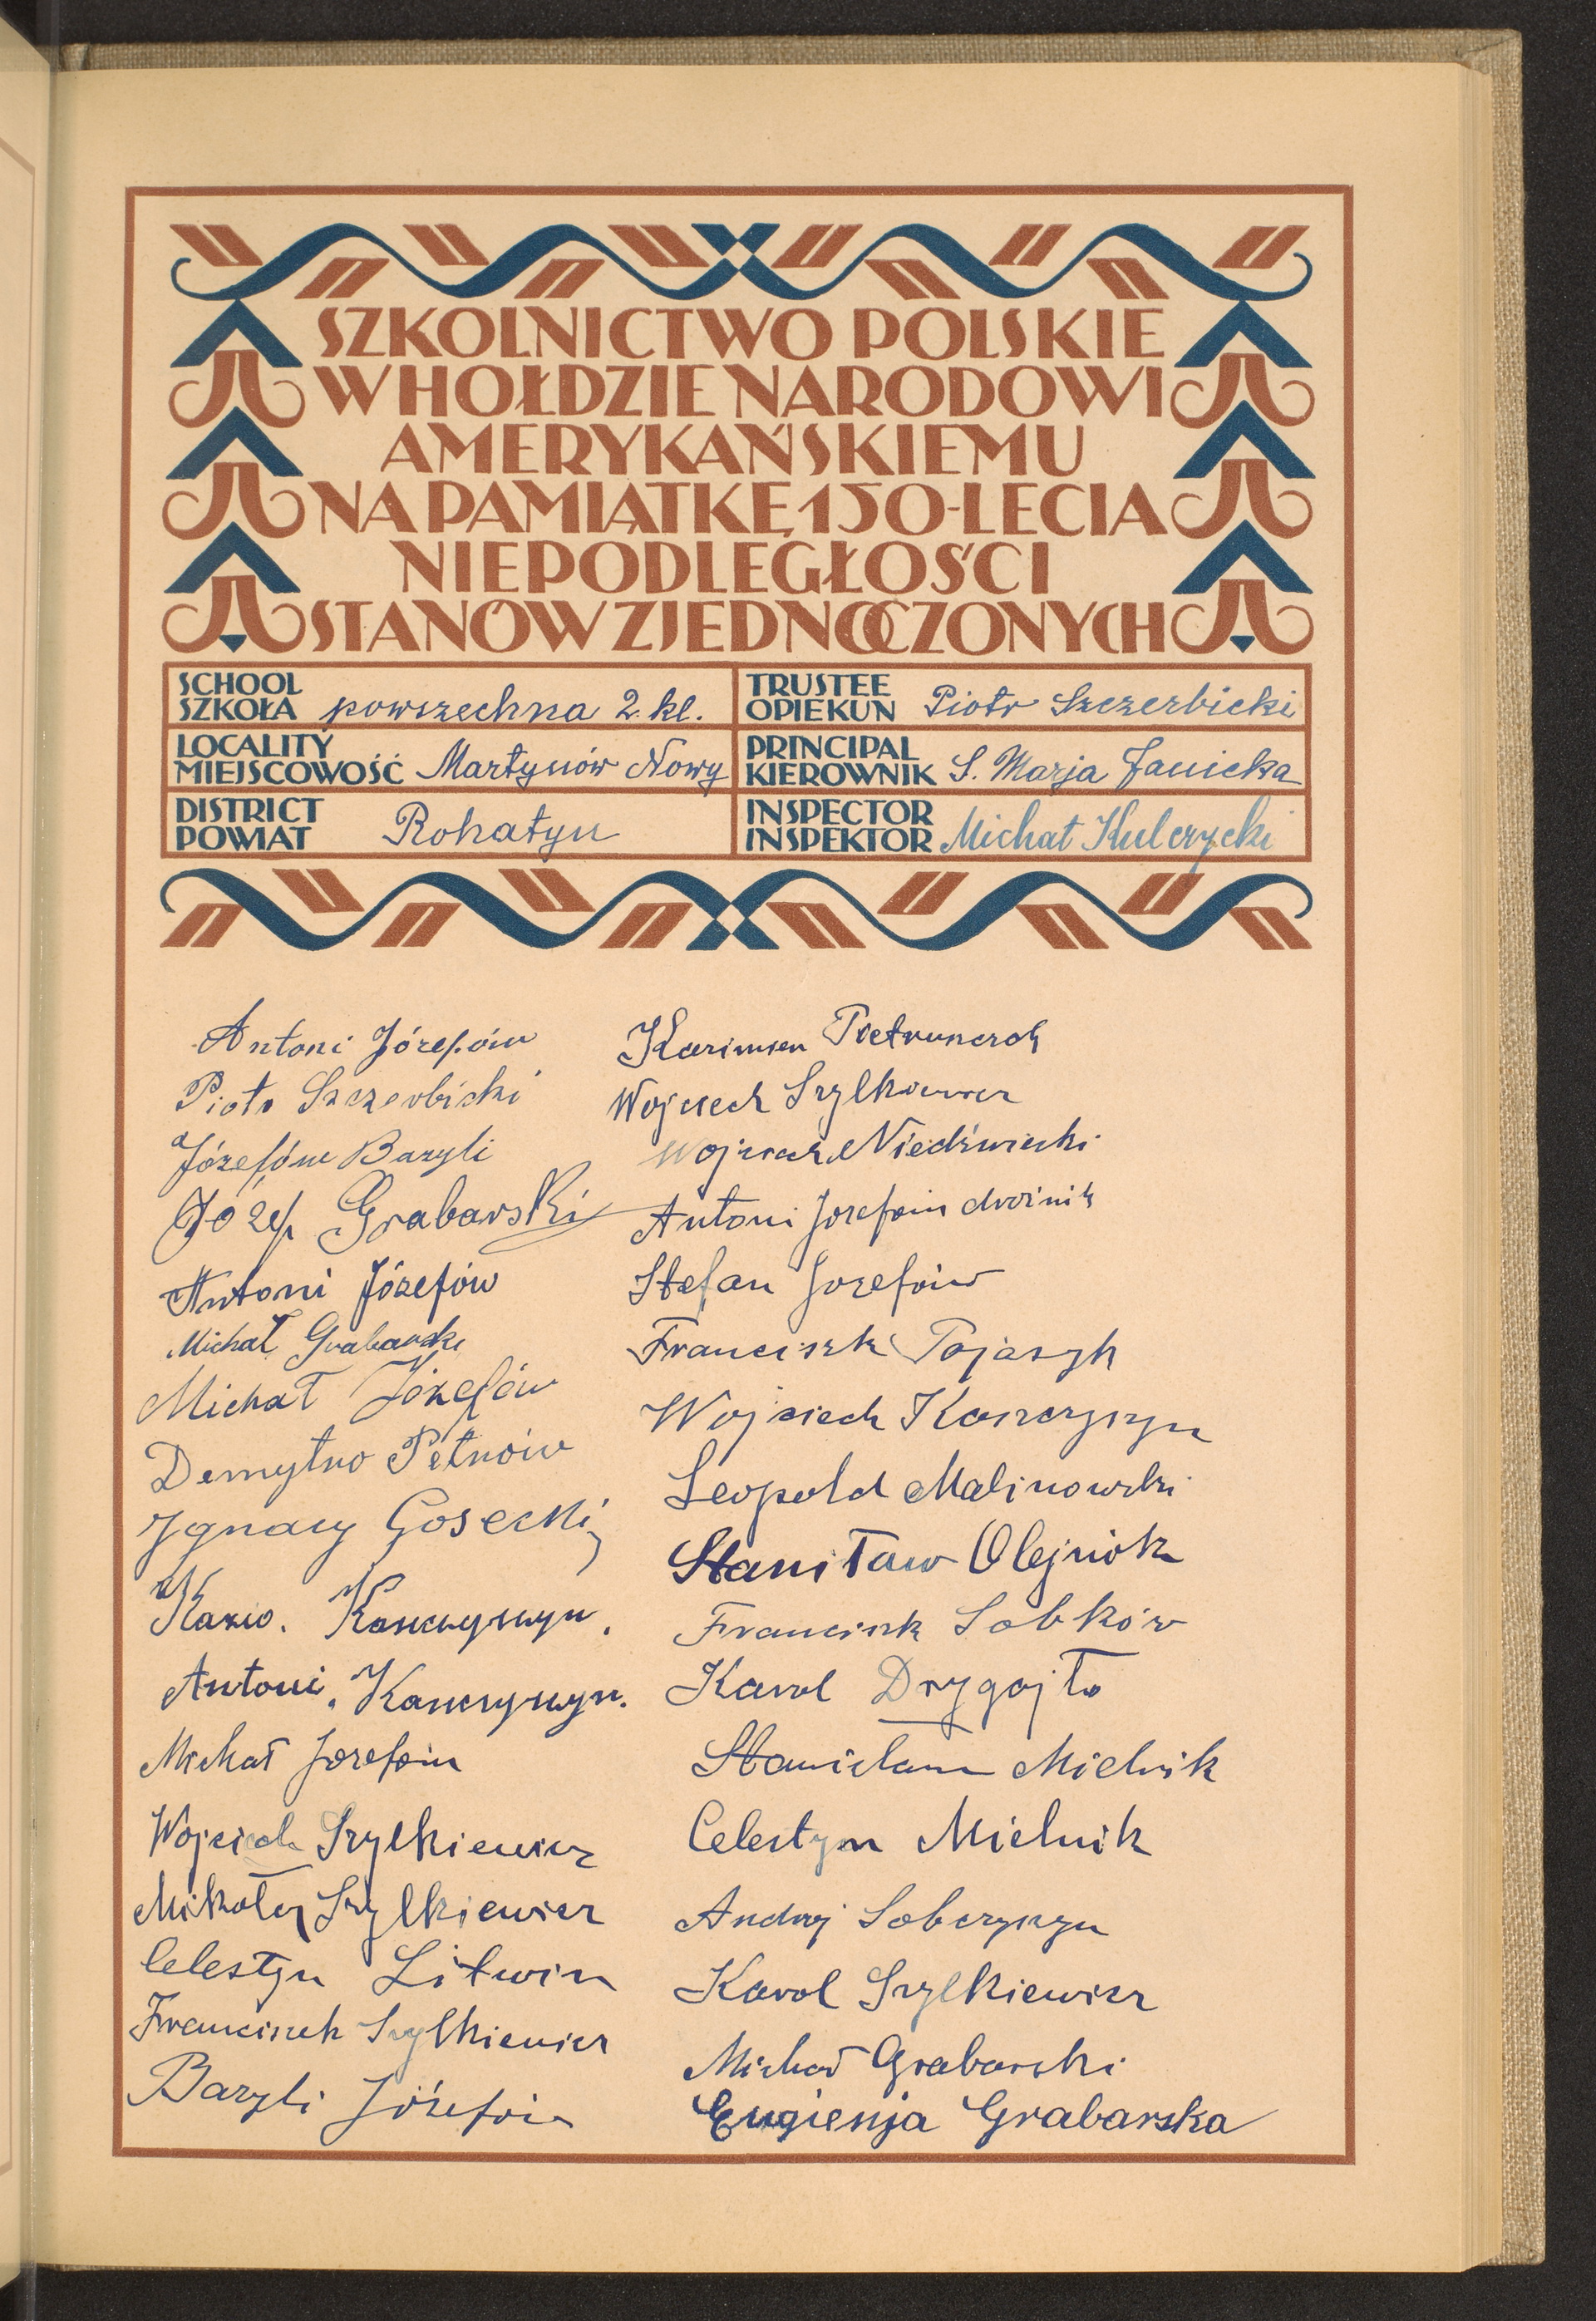 SZKOLNICTWO POLSKIE
W HOŁDZIE NARODOWI
AMERYKAŃSKIEMU
NA PAMIĄTKĘ 150-LECIA
NIEPODLEGŁOŚCI
STANÓW ZJEDNOCZONYCH
SCHOOL
SZKOŁA powszechna 2. kl.
TRUSTEE
OPIEKUN Piotr Szczerbicki
LOCALITY
MIEJSCOWOŚĆ Martynów Nowy
PRINCIPAL
KIEROWNIK S. Marja Janicka
DISTRICT
POWIAT Rohatyn
INSPECTOR
INSPEKTOR Michał Kulczycki
Antoni Józefów
Piotr Szczerbicki
Józefów Bazyli
Józef Grabarski
Antoni Józefów
Michał Grabarski
Michał Józefów
Demytro Petrów
Ignacy Gosecki
Kazio. Kaszczyszyn.
Antoni. Kaszczyszyn.
Michał Jozefow
Wojciech Szylkiewicz
Mikołaj Szylkiewicz
Celestyn Litwin
Franciszek Szylkiewicz
Bazyli Józefów
Kazimierz
Wojciech
Wojciech Niedźwiecki
Antoni Jozefów dwornik
Stefan Jozefów
Franciszk Pojasyk
Wojciech Kaszczyszyn
Leopold Malinowski
Stanisław Olejnik
Franciszk Sobków
Karol Drygajło
Stanisław Mielnik
Celestyn Mielnik
Andrzj Sobczyszyn
Karol Szylkiewicz
Michał Grabarski
Eugienja Grabarska